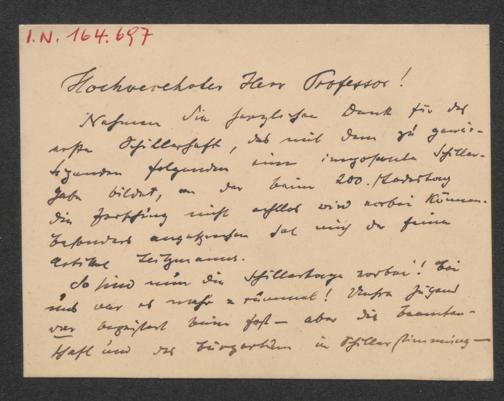 I.N. 164.697
Hochverehrter Herr Professor!
Nehmen Sie herzlichen Dank für das
erste Schillerheft, das mit dem zu gewär-
tigenden folgenden eine imposante Schiller-
gabe bildet, an der beim 200.
die Forschung nicht achtlos wird vorbei können.
Besonders angesprochen hat mich der feine
Artikel Leitzmanns.
So sind nun die Schillertage vorbei! Bei
uns war es mehr Unsre Jugend
war begeistert beim Fest – aber die Beamten-
schaft und das Bürgertum in Schillerstimmung –